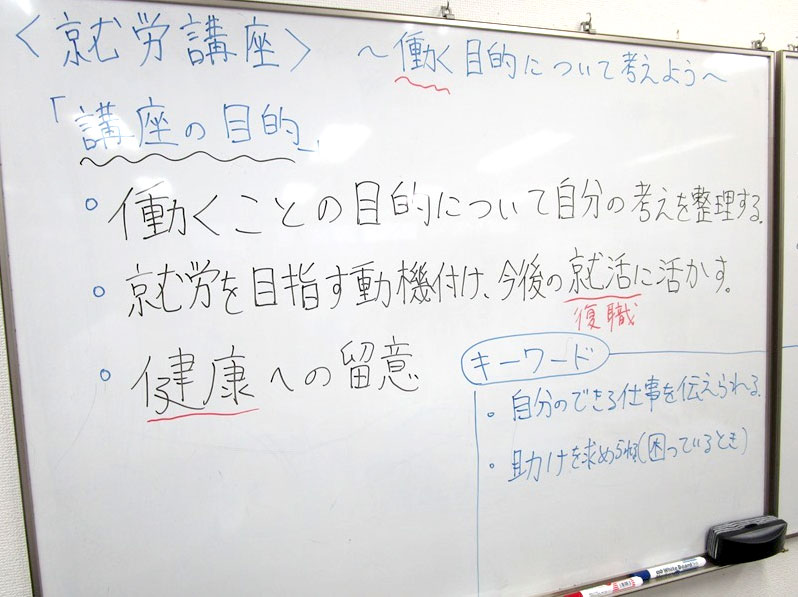 〈就労講座〉 ～働く目的について考えよう～
「講座の目的」
・働くことの目的について自分の考えを整理する。
・就労を目指す動機付け、今後の就活に活かす。
復職
・健康への留意
キーワード
・自分のできる仕事を伝えられる。
・助けを求められる(困っているとき)
White Board